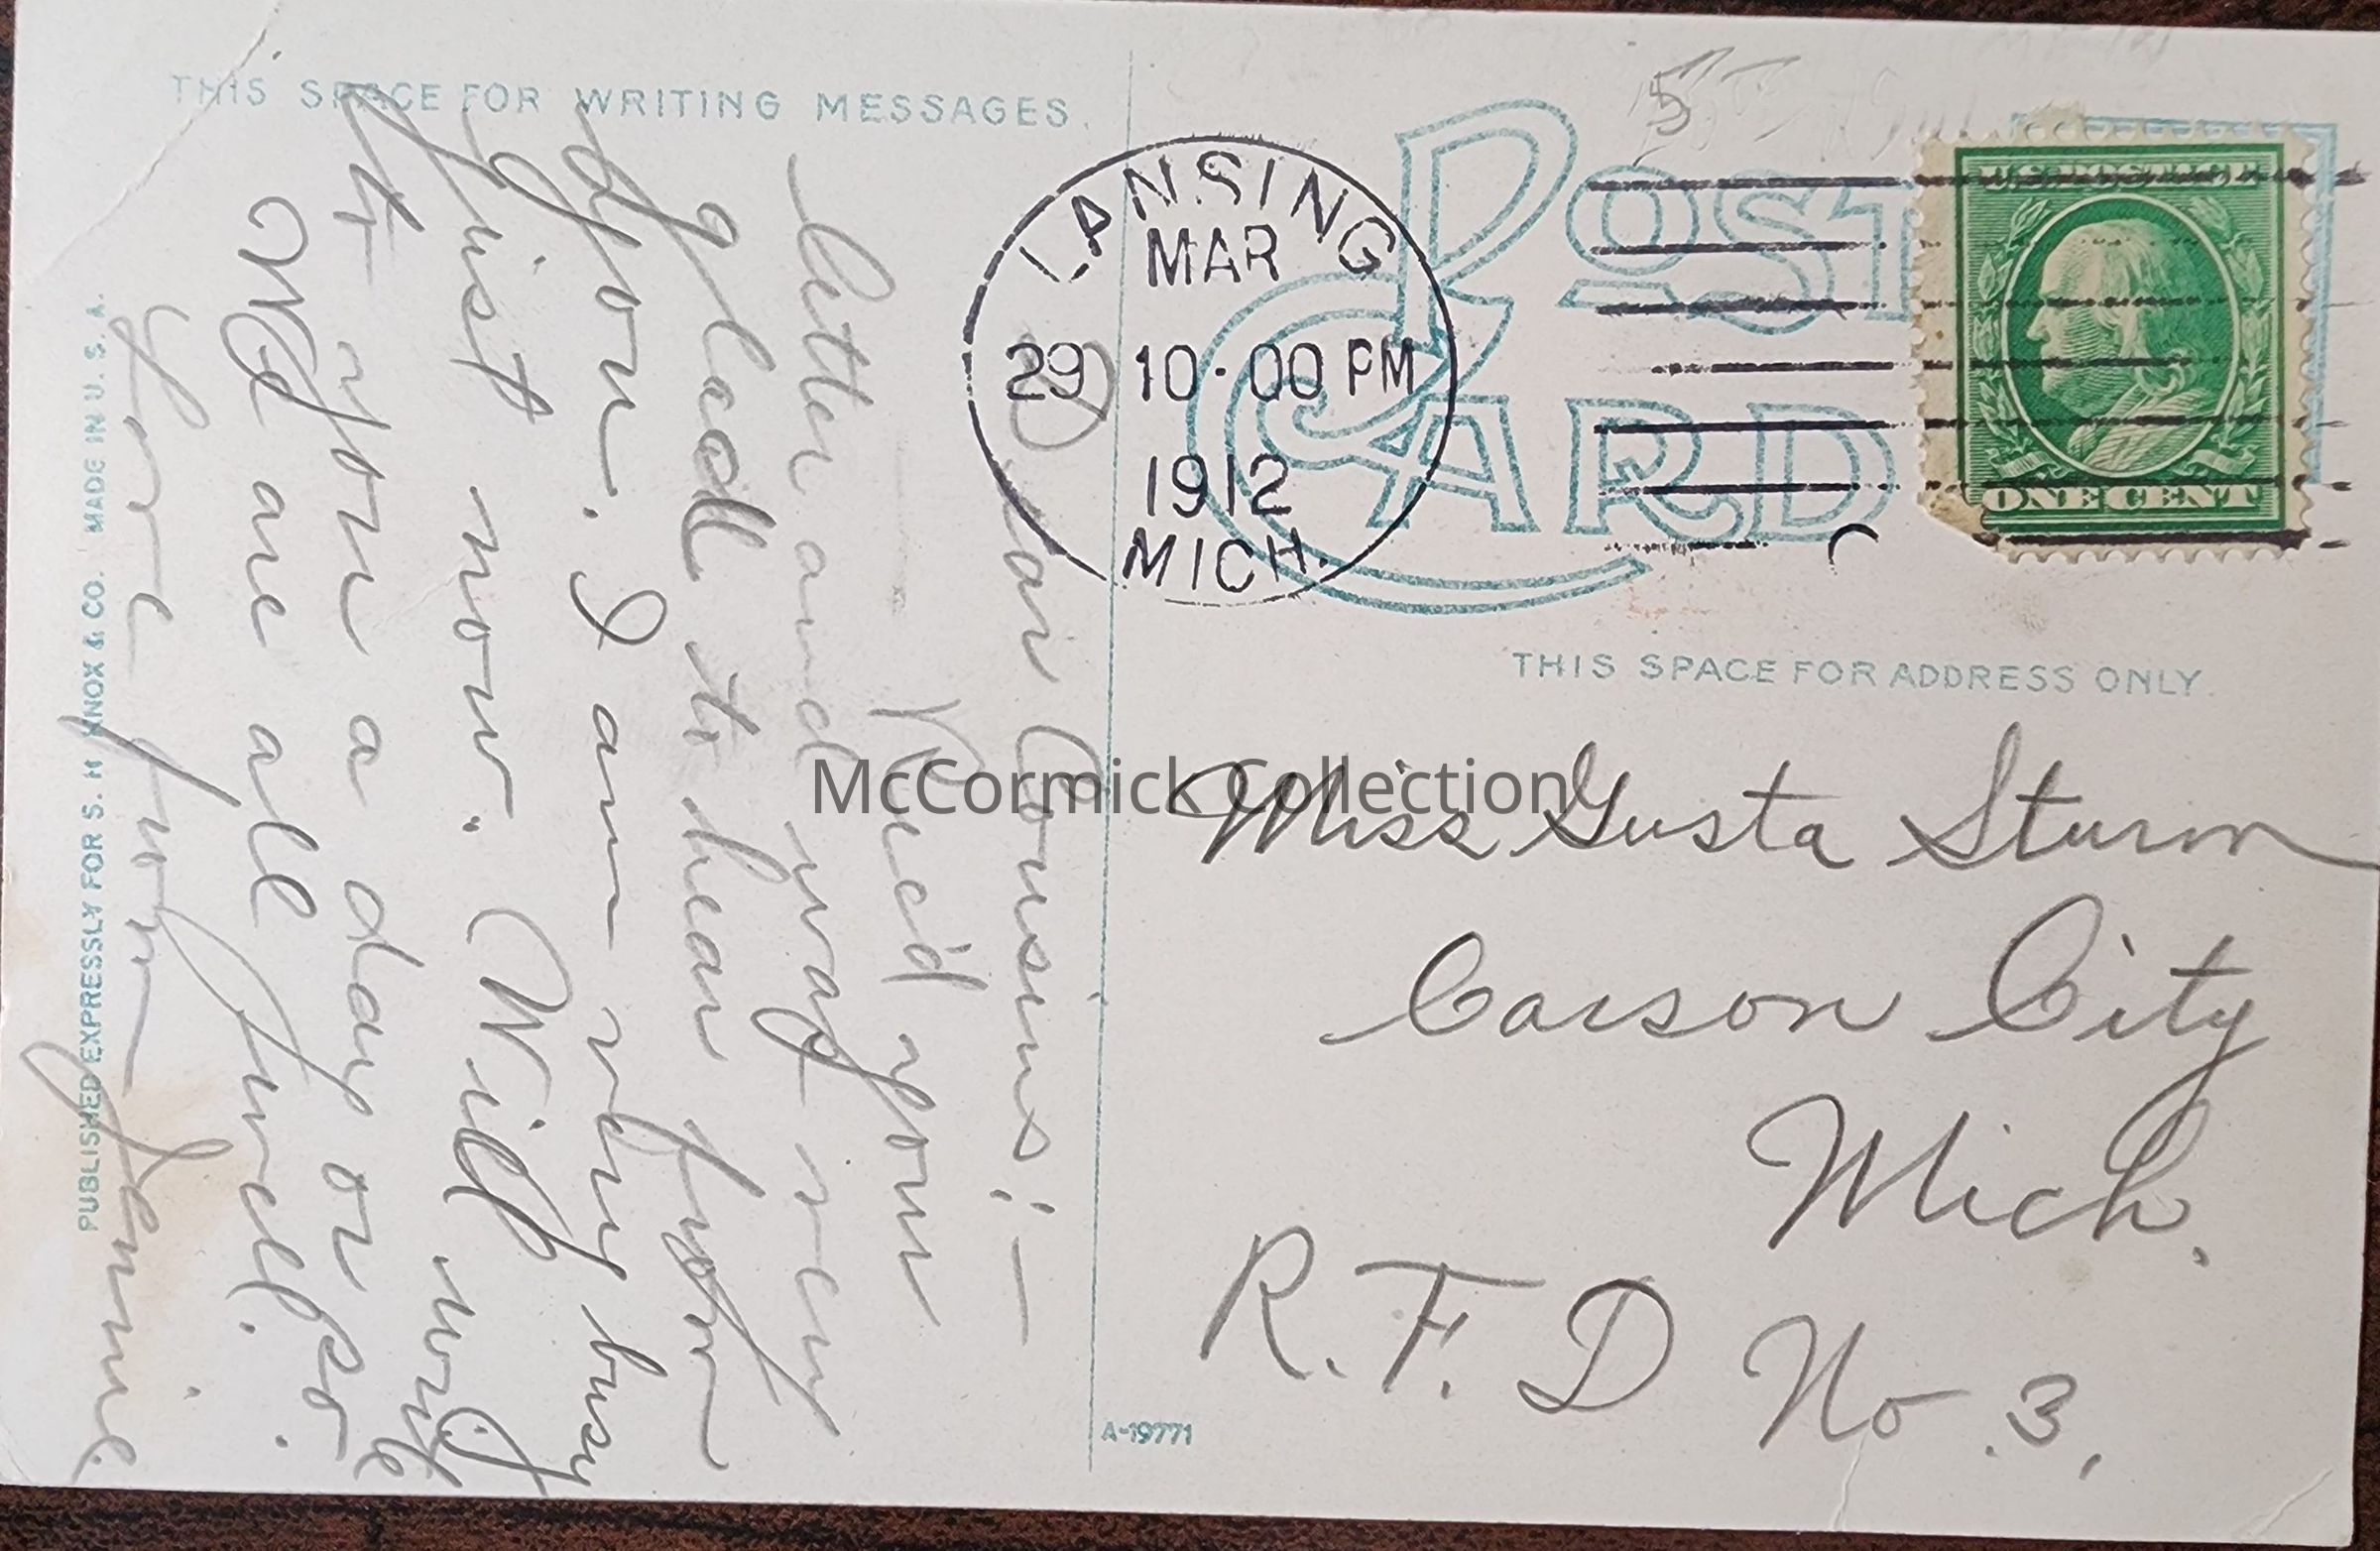 THIS SPACE FOR WRITING MESSAGES.
Dear Cousins:—
Rec'd your
letter and was very
glad to hear from
you. I am very busy
just now. Will write
to you a day or so
We are all well.
Love from Jennie.
PUBLISHED EXPRESSLY FOR S. H. KNOX & CO. MADE IN U. S. A.
LANSING
MAR
29 10·00 PM
1912
MICH.
POST
CARD
U.S. POSTAGE
ONE CENT
THIS SPACE FOR ADDRESS ONLY.
Miss Gusta Sturm
Carson City
Mich.
R. F. D No. 3,
A-19771
McCormick Collection